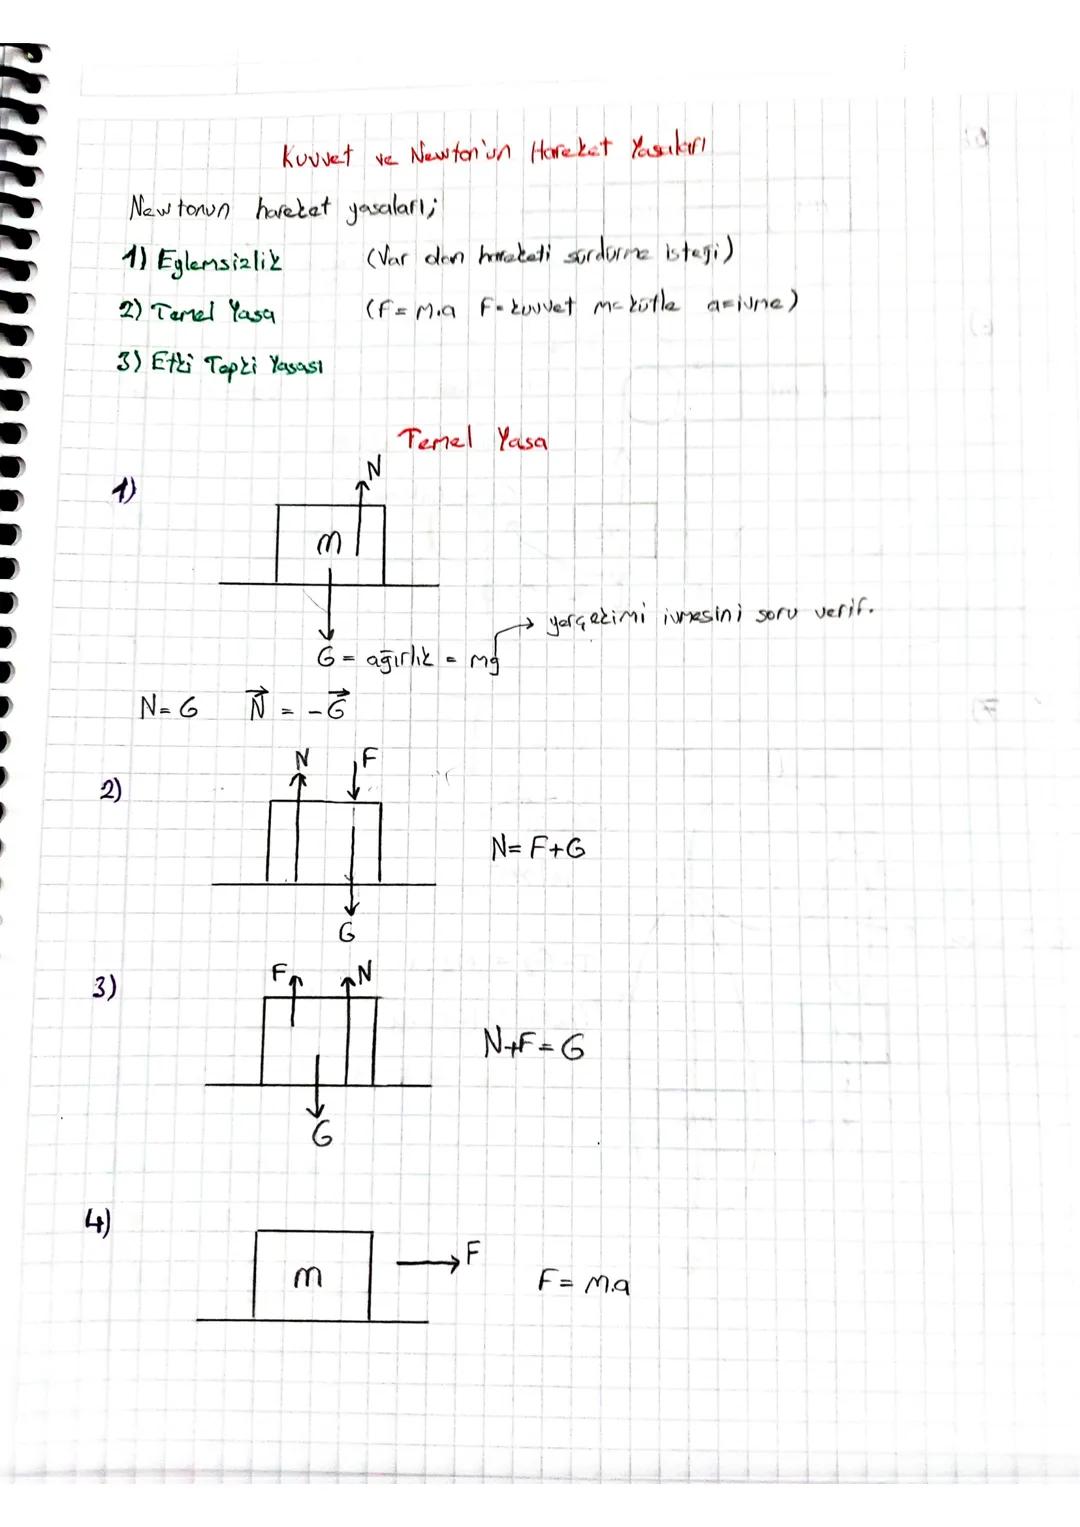 Kuvvet ve Newton'un Hareket Yasaları
Newtonun hareket yasaları;
1) Eylemsizlik (Var olan hareketi sürdürme isteği)
2) Temel Yasa (F= m.a F=kuvvet m=kütle a=ivme)
3) Etki Tepki Yasası
Temel Yasa
1)
N
m
yerçekimi ivmesini soru verir.
G = ağırlık = mg
N=G N = -G
2)
N F
N= F+G
G
3)
F N
N+F=G
G
4)
m
F
F= m.a